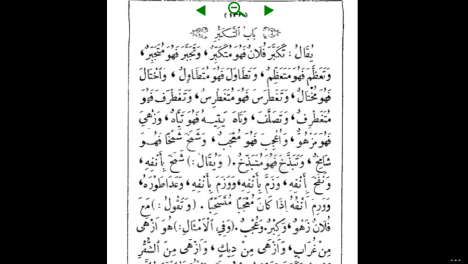 (١٣٨)
بَابُ التَّكَبُّرِ
يُقَالُ : تَكَبَّرَ فُلَانٌ فَهُوَ مُتَكَبِّرٌ ، وَتَجَبَّرَ فَهُوَ مُتَجَبِّرٌ ،
وَتَعَظَّمَ فَهُوَ مُتَعَظِّمٌ ، وَتَطَاوَلَ فَهُوَ مُتَطَاوِلٌ ، وَاخْتَالَ
فَهُوَ مُخْتَالٌ ، وَتَغَطْرَسَ فَهُوَ مُتَغَطْرِسٌ ، وَتَغَطْرَفَ فَهُوَ
مُتَغَطْرِفٌ ، وَتَصَلَّفَ ، وَتَاهَ يَتِيهُ فَهُوَ تَيَّاهٌ ، وَزُهِيَ
فَهُوَ مَزْهُوٌّ ، وَأُعْجِبَ فَهُوَ مُعْجَبٌ ، وَشَمَخَ شَمْخًا فَهُوَ
شَامِخٌ ، وَتَبَذَّخَ فَهُوَ مُتَبَذِّخٌ . ( وَيُقَالُ : ) شَمَخَ بِأَنْفِهِ ،
وَنَفَخَ أَنْفِهِ ، وَزَمَّ بِأَنْفِهِ ، وَوَرِمَ بِأَنْفِهِ ، وَعَدَا طَوْرَهُ ،
وَوَرِمَ أَنْفُهُ إِذَا كَانَ مُعْجَبًا . ( وَتَقُولُ : ) مَعَ
فُلَانٍ زَهْوٌ ، وَكِبْرٌ ، وَعُجْبٌ . ( وَفِي الْأَمْثَالِ : ) هُوَ أَزْهَى
مِنْ غُرَابٍ ، وَأَزْهَى مِنْ دِيكٍ ، وَأَزْهَى مِنَ